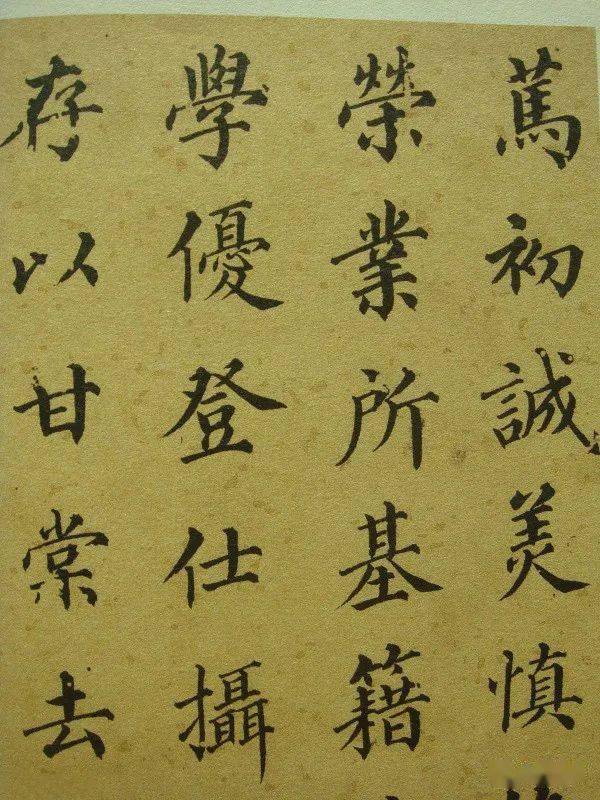 篤初誠美慎
榮業所基籍
學優登仕攝
存以甘棠去